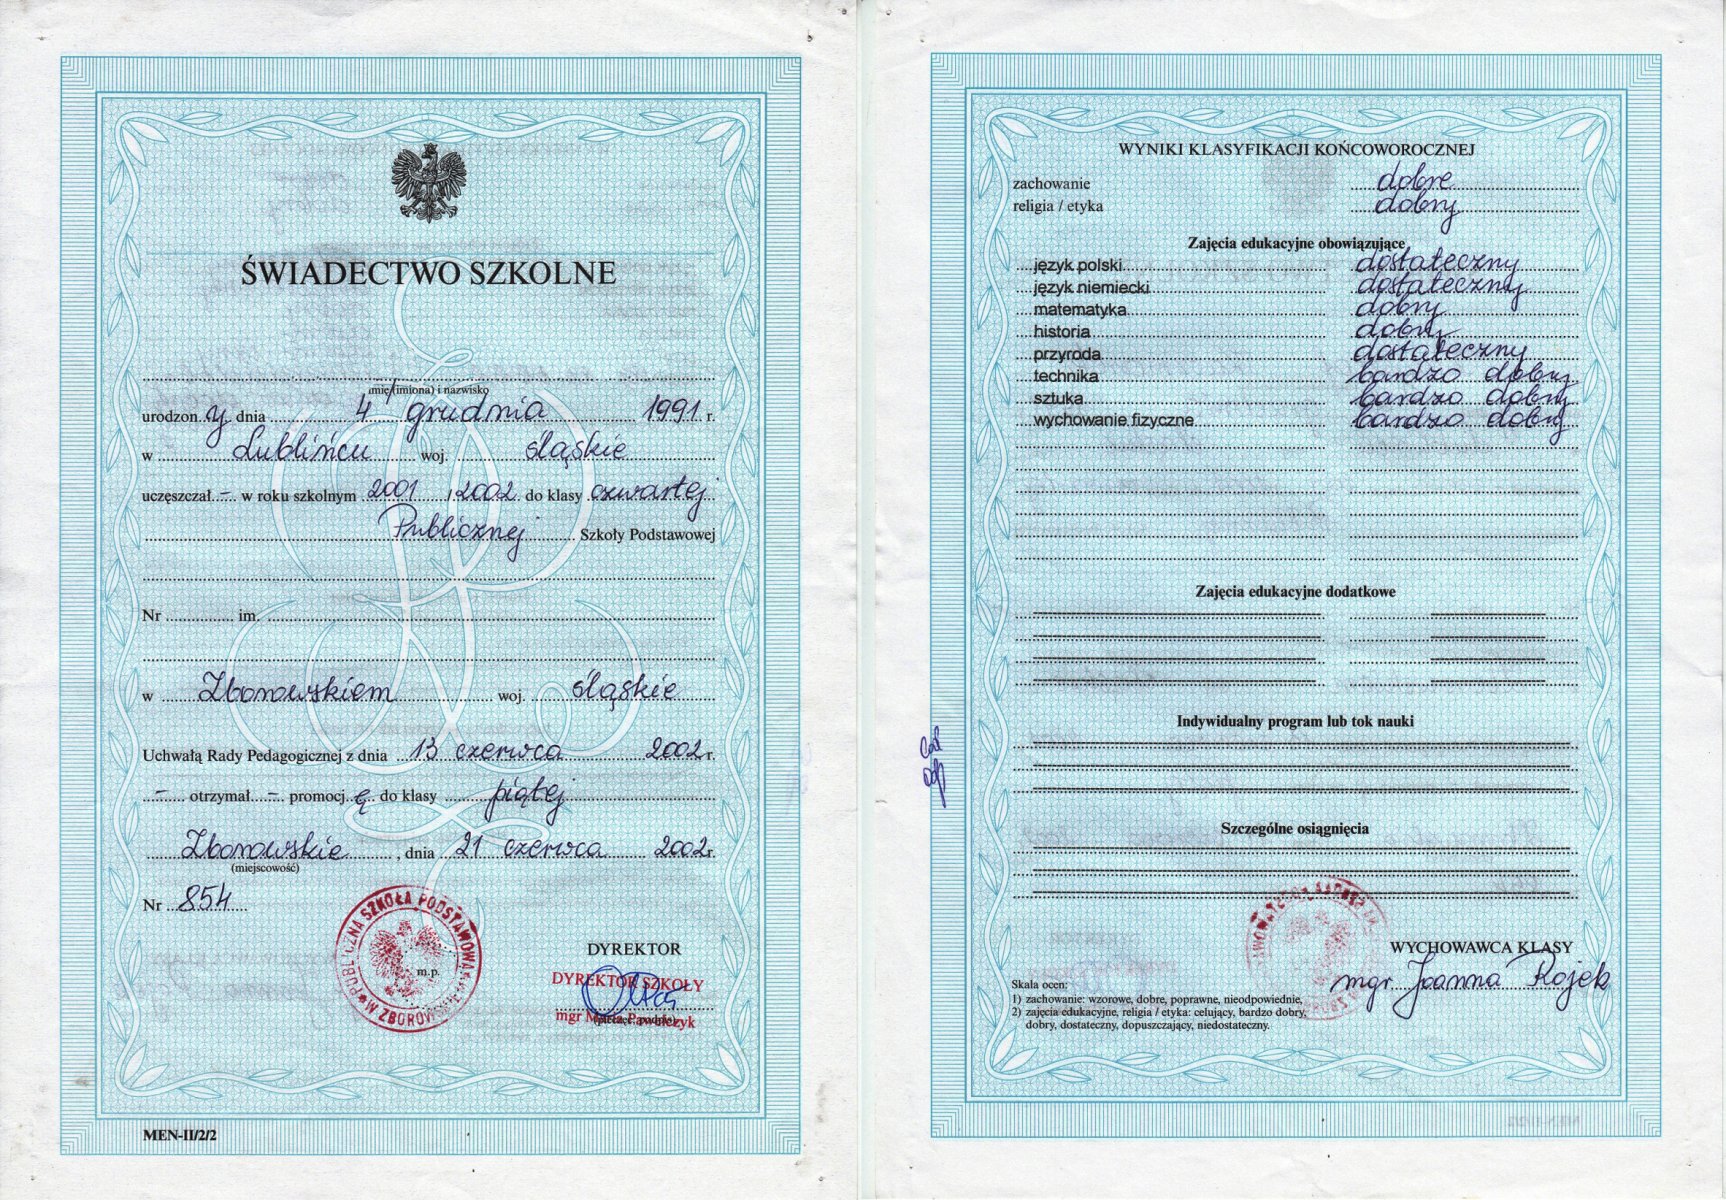 ŚWIADECTWO SZKOLNE
imię (imiona) i nazwisko
urodzony dnia 4 grudnia 1991 r.
w Lublińcu woj. śląskie
uczęszczał - w roku szkolnym 2001 / 2002 do klasy czwartej
Publicznej Szkoły Podstawowej
Nr im.
w Zborowskiem woj. śląskie
Uchwałą Rady Pedagogicznej z dnia 13 czerwca 2002 r.
- otrzymał - promocję do klasy piątej
Zborowskie, dnia 21 czerwca 2002 r.
(miejscowość)
Nr 854
PUBLICZNA SZKOŁA PODSTAWOWA W ZBOROWSKIEM
m.p.
DYREKTOR
DYREKTOR SZKOŁY
mgr Pawełczyk
MEN-II/2/2
WYNIKI KLASYFIKACJI KOŃCOWOROCZNEJ
zachowanie dobre
religia / etyka dobry
Zajęcia edukacyjne obowiązujące
język polski dostateczny
język niemiecki dostateczny
matematyka dobry
historia dobry
przyroda dostateczny
technika bardzo dobry
sztuka bardzo dobry
wychowanie fizyczne bardzo dobry
Zajęcia edukacyjne dodatkowe
Indywidualny program lub tok nauki
Szczególne osiągnięcia
WYCHOWAWCA KLASY
mgr Joanna Rojek
Skala ocen:
1) zachowanie: wzorowe, dobre, poprawne, nieodpowiednie,
2) zajęcia edukacyjne, religia / etyka: celujący, bardzo dobry,
dobry, dostateczny, dopuszczający, niedostateczny.